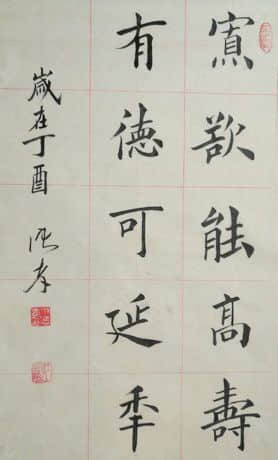 寡欲能高壽
有德可延年
歲在丁酉